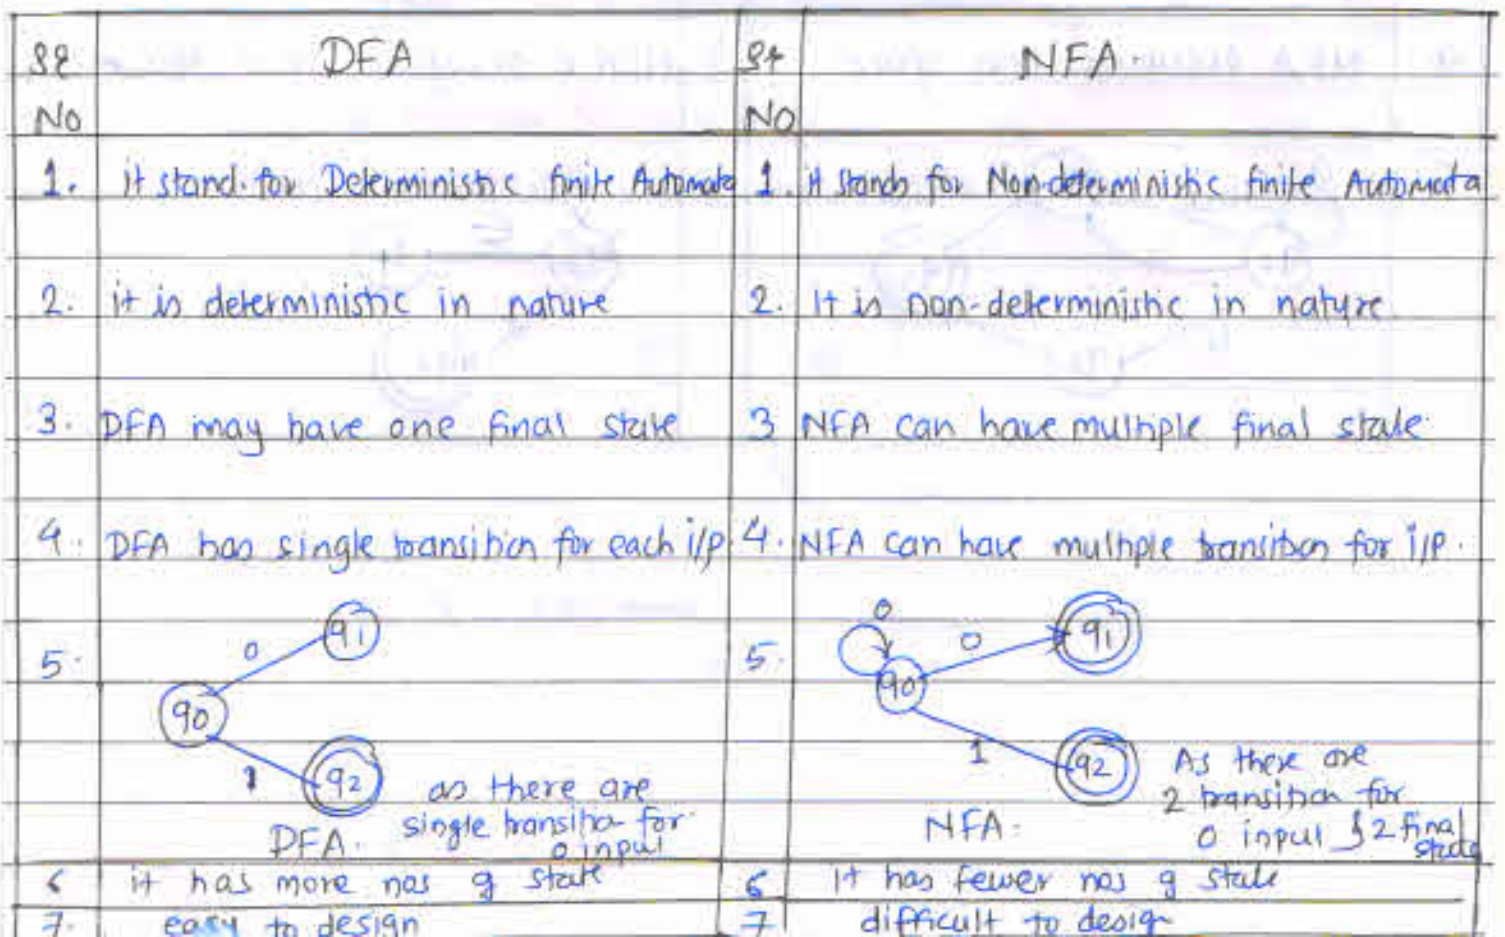 Sr DFA Sr NFA.
No No
1. it stand. for Deterministic finite Automata 1. it stands for Non-deterministic finite Automata
2. it is deterministic in nature 2. It is non-deterministic in nature
3. DFA may have one final state 3 NFA can have multiple final state
4. DFA has single transition for each i/p. 4. NFA can have multiple transition for i/p.
5. 5.
0 q1 0 0 q1
q0 q0
1 q2 1 q2
as there are As there are
single transition for 2 transition for
0 input 0 input 2 final
state
DFA. NFA.
6 it has more nos of state 6 It has fewer nos of state
7. easy to design 7 difficult to design